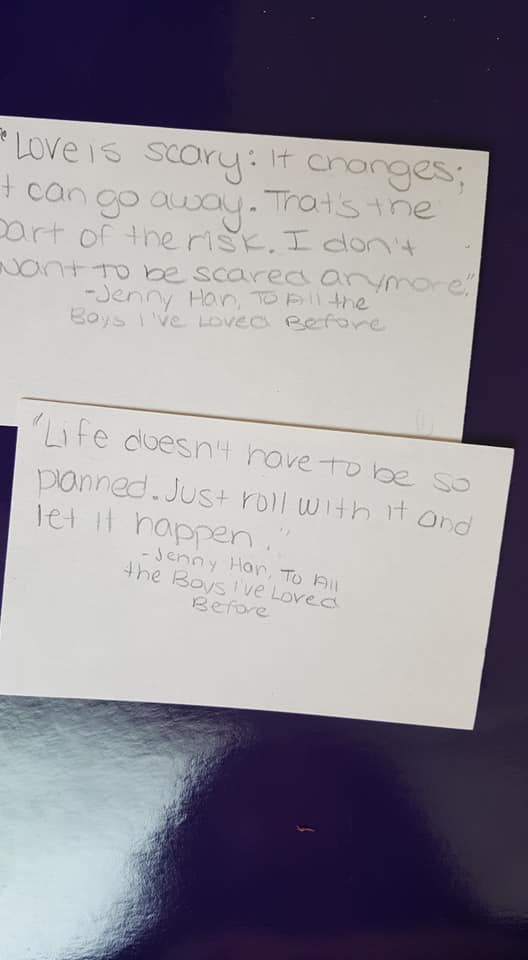 "Love is scary: It changes;
t can go away. That's the
part of the risk. I don't
want to be scared anymore."
-Jenny Han, To All the
Boys I've Loved Before
"Life doesn't have to be so
planned. Just roll with it and
let it happen."
-Jenny Han, To All
the Boys I've Loved
Before